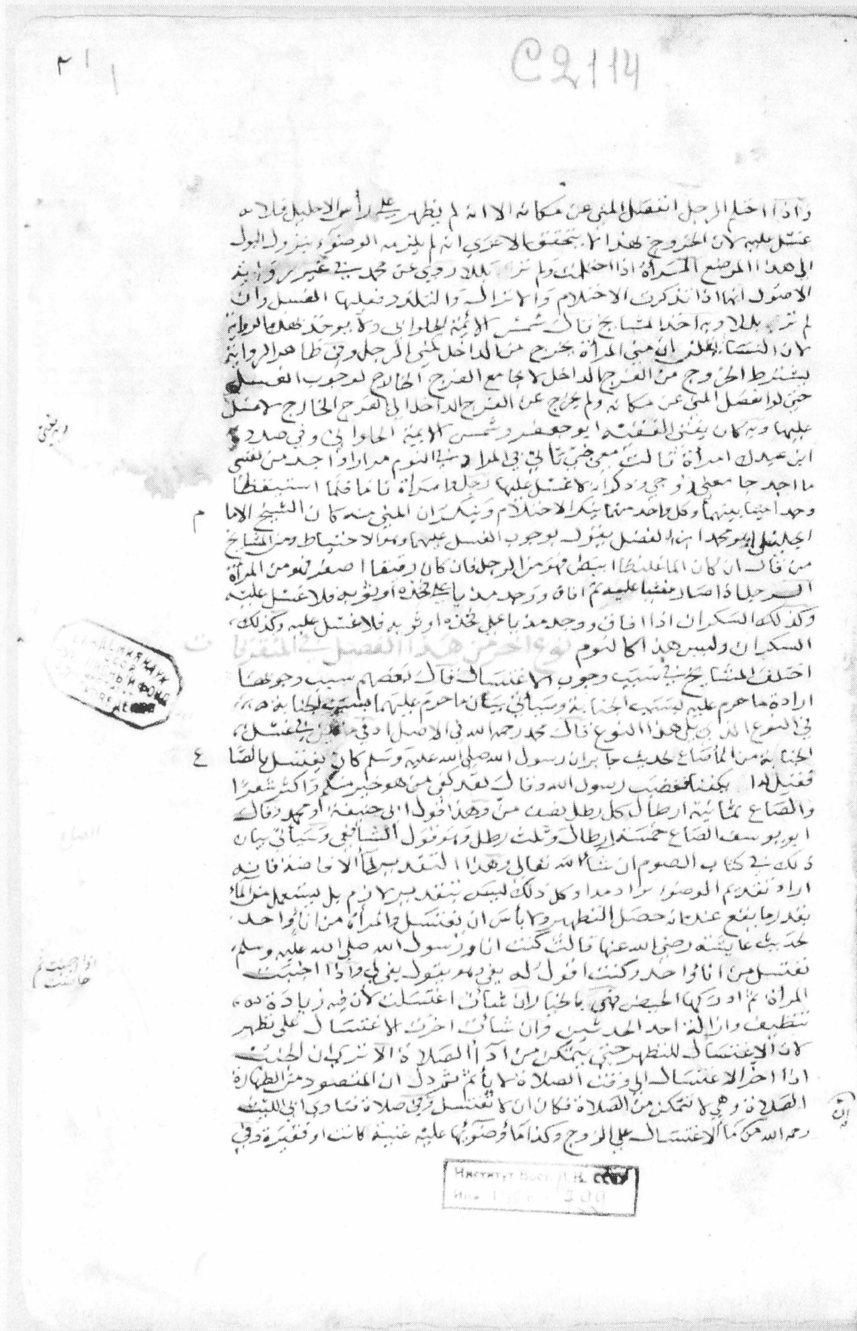 C 2114
واذا احتلم الرجل انفصل المني عن مكانه الا انه لم يظهر على رأس الاحليل فلا
غسل عليه لان الخروج لهذا لا يتحقق الا تري انه لم يلزمه الوضوء بنزول البول
الى هذا الموضع المرأة اذا احتلمت ولم تر بللا روي عن محمد في غير رواية
الاصول انها اذا تذكرت الاحتلام والانزال والتلذذ فعليها الغسل وان
لم تر بللا وبه اخذ المشايخ قال شمس الائمة الحلواني ولا يوخذ بهذه الرواية
لان النساء يقلن ان مني المرأة يخرج من الداخل كمني الرجل وفي ظاهر الرواية
يشترط الخروج من الفرج الداخل الى الفرج الخارج لوجوب الغسل
حتى لو انفصل المني عن مكانه ولم يخرج عن الفرج الداخل الى الفرج الخارج لا غسل
عليها وبه كان يفتي الفقيه ابو جعفر وشمس الائمة الحلواني وفي صلاة
ابن عبدك امرأة قالت معي جني يأتيني في النوم مرارا واجد من نفسي
ما اجد جامعني زوجي لا غسل عليها رجل وامرأة ناما فلما استيقظا
وجدا منيا بينهما وكل واحد منهما ينكر الاحتلام وينكر ان المني منه كان الشيخ الاما م
الجليل ابو بكر محمد ابن الفضل يقول بوجوب الغسل عليهما وهو الاحتياط ومن المشايخ
من قال ان كان الماء غليظا ابيض فهو من الرجل فان كان رقيقا اصفر فهو من المرأة
الرجل اذا صار مغشيا عليه ثم افاق ووجد مذيا على فخذه او ثوبه فلا غسل عليه
وكذلك السكران اذا افاق ووجد مذيا على فخذه او ثوبه فلا غسل عليه وكذلك
السكران وليس هذا كالنوم نوع اخر من هذا الفصل في المتفرقا ت
اختلف المشايخ في سبب وجوب الاغتسال قال بعضهم سبب وجوبها
ارادة ما حرم عليه بسبب الجنابة وسياتي بيان ما حرم عليهما بسبب الجنابة
في النوع الذي يلي هذا النوع قال محمد رحمه الله في الاصل ادنى ما يكفي في غسل
الجنابة من الماء صاع لحديث جابر ان رسول الله صلى الله عليه وسلم كان يغتسل بالصا ع
فقيل له ان لم يكفنا فغضب رسول الله وقال لقد كفى من هو خير منكم واكثر شعرا
والصاع ثمانية ارطال كل رطل نصف من وهذا قول ابي حنيفة ومحمد وقال
ابو يوسف الصاع خمسة ارطال وثلث رطل وهو قول الشافعي وسياتي بيان
ذلك في كتاب الصوم ان شا الله تعالى وهذا التقدير لما الافاضة فان
اراد تقديم الوضوء زاد مدا وكل ذلك ليس بتقدير لازم بل يستعمل من الماء
بقدر ما يقع عنده انه حصل التطهير ولا باس ان يغتسل والمرأة من اناء واحد
لحديث عايشة رضي الله عنها قالت كنت انا ورسول الله صلى الله عليه وسلم
نغتسل من اناء واحد وكنت اقول له بقي لي وهو يقول بقي لي واذا اجنبت
المرأة ثم ادركها الحيض فهي بالخيار ان شات اغتسلت لان فيه زيادة
تنظيف وازالة احد الحدثين وان شات اخرت الاغتسال حتى تطهر
لان الاغتسال للتطهر حتى يتمكن من اداء الصلاة الا تري ان الجنب
اذا اخر الاغتسال الى وقت الصلاة لا يأثم ثم دل ان المقصود من الطهارة
الصلاة وهي لا تتمكن من الصلاة فكان ان لا تغتسل وفي صلاة فتاوي ابي الليث
رحمه الله ثمن ماء الاغتسال على الزوج وكذا ماء وضوئها عليه غنية كانت او فقيرة وفي